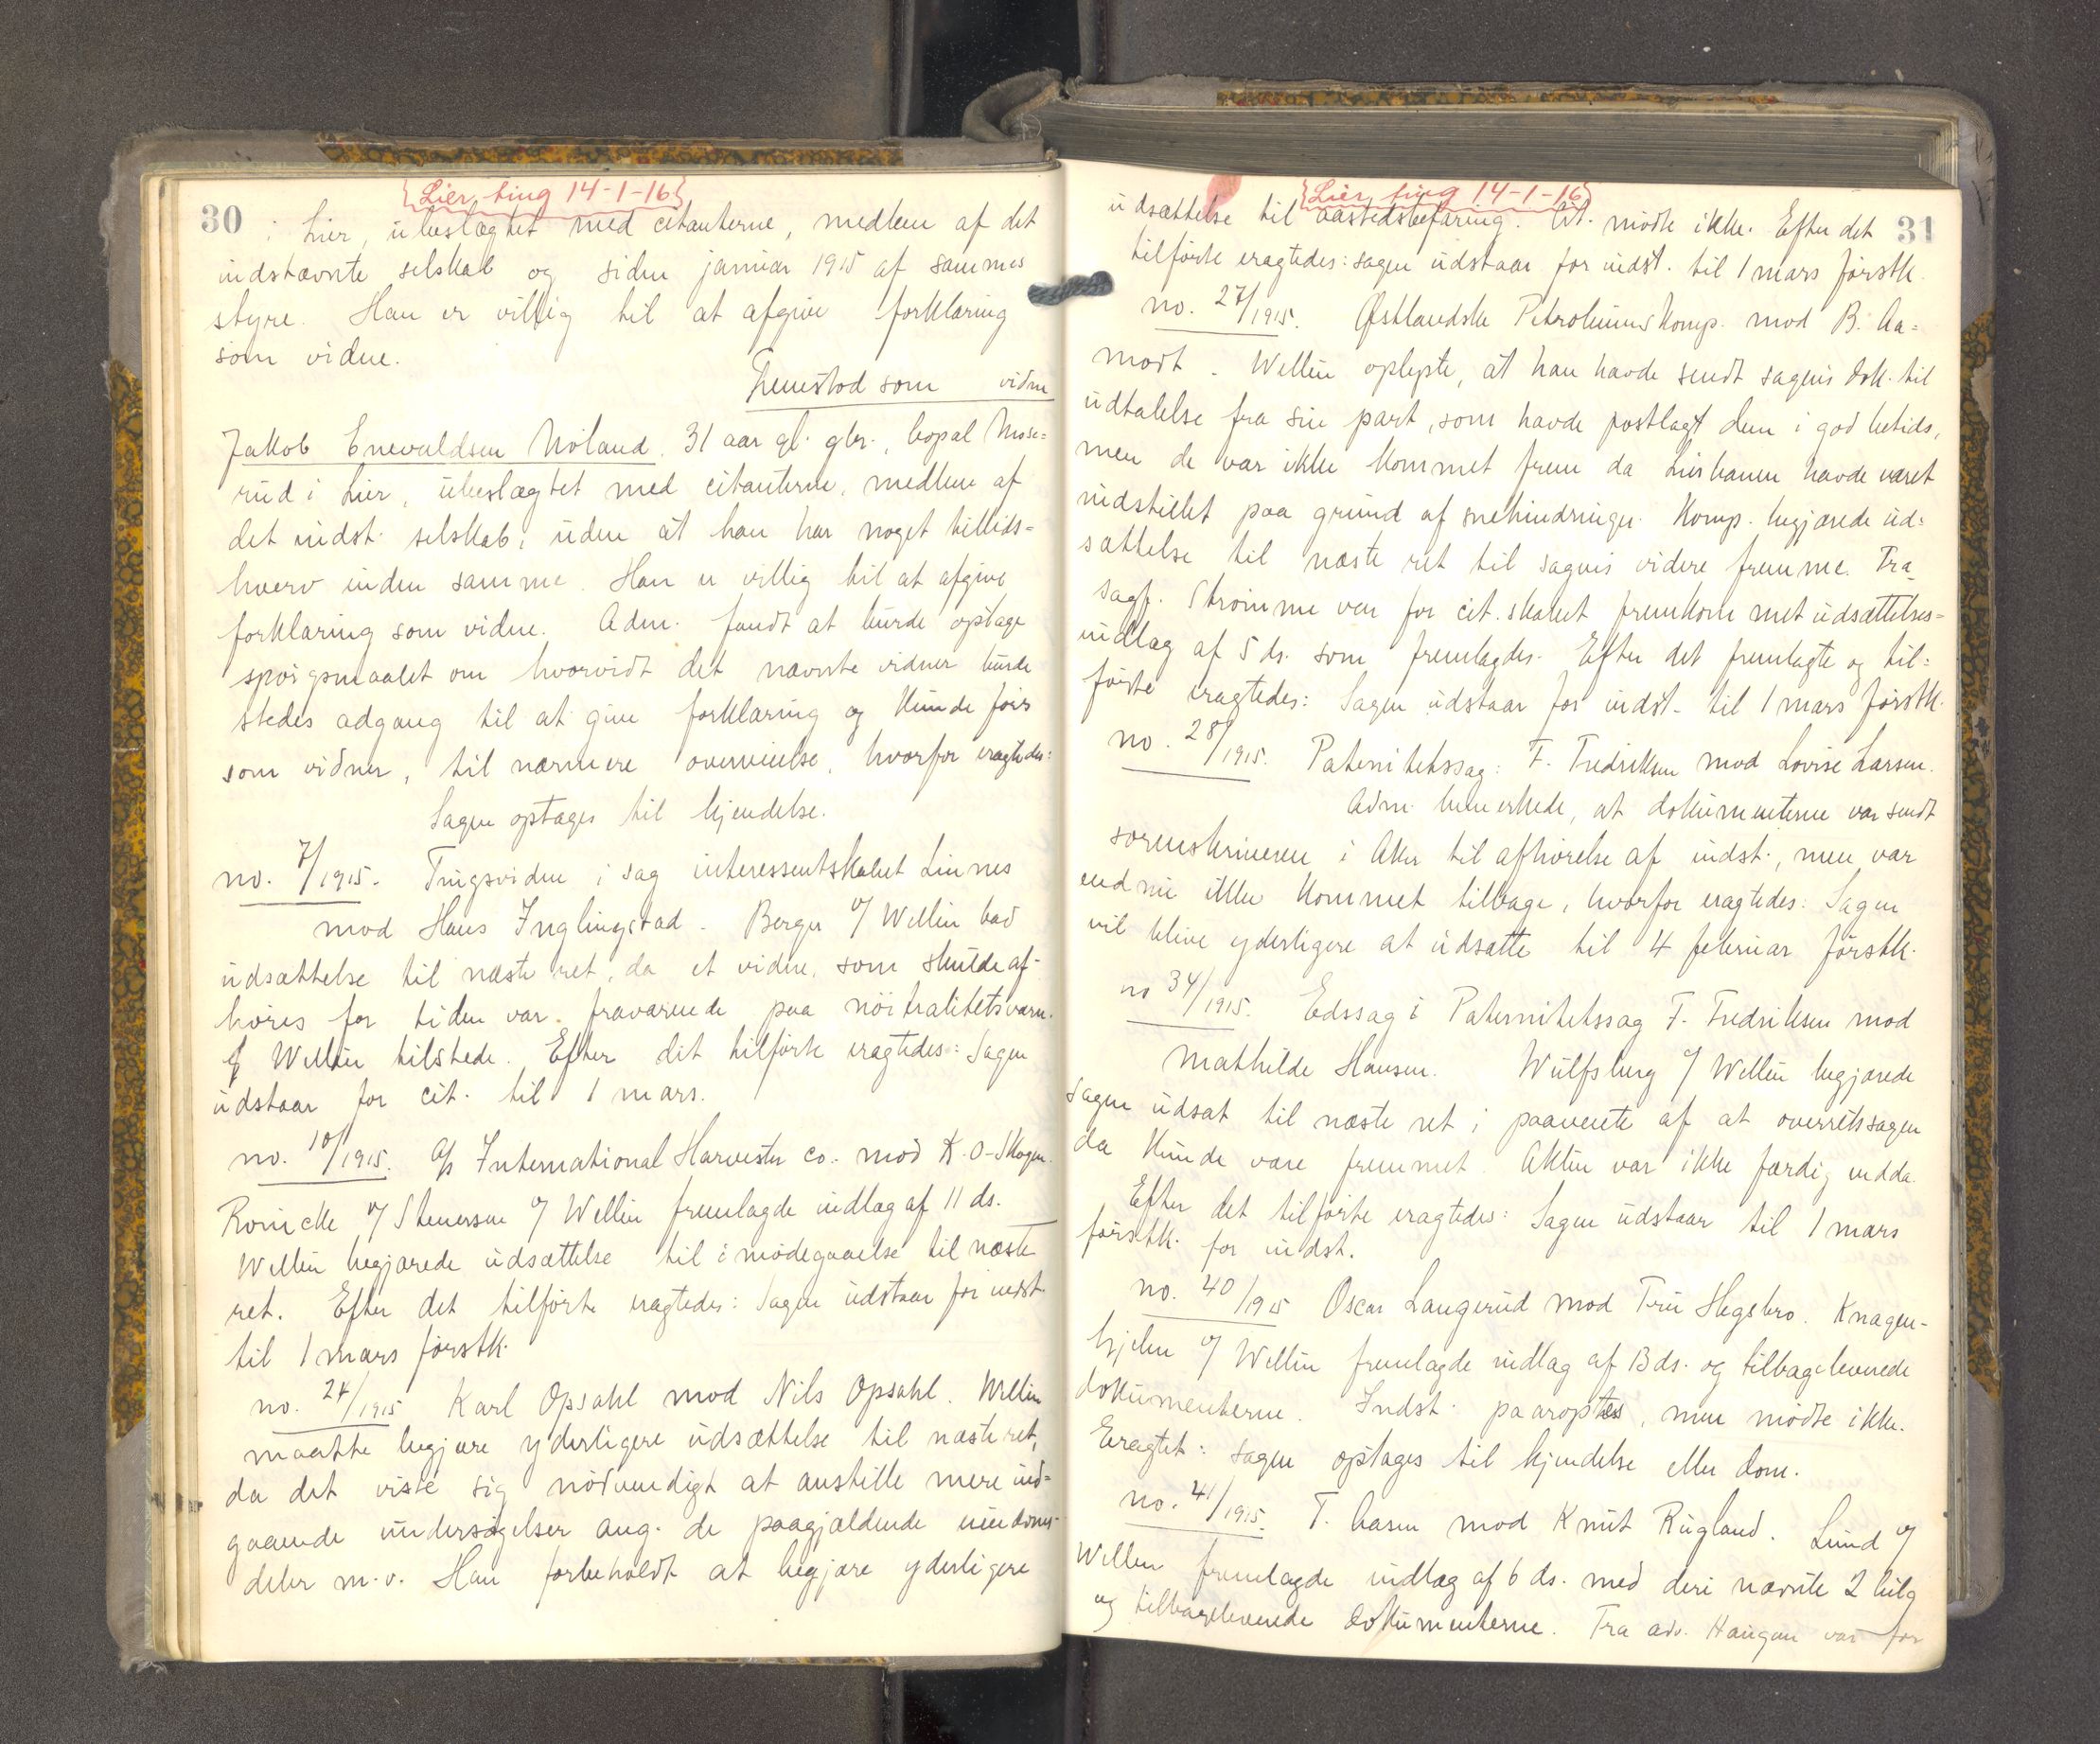 Lier, ting 14-1-16
30
i Lier, ubeslægtet med citanterne, medlem af det
indstævnte selskab og siden januar 1915 af sammes
styre. Han er villig til at afgive forklaring
som vidne.
Fremstod som vidne
Jakob Enevaldsen Möland, 31 aar gl. gbr., bopal Mose=
rud i Lier, ubeslægtet med citanterne, medlem af
det indst. selskab, uden at han har noget tillids=
hverv inden samme. Han er villig til at afgive
forklaring som vidne. Adm. fandt at burde optage
spörgsmaalet om hvorvidt det nævnte vidner burde
stedes adgang til at give forklaring og kunde föres
som vidner, til nærmere overveielse, hvorfor eragtedes:
Sagen optages til kjendelse.
no. 7/1915. Tingsvidne i sag interessentskabet Linnes
mod Hans Inglingstad. Berger v/ Wellin bad
udsættelse til næste ret, da et vidne, som skulde af-
höres for tiden var fraværende paa nöitralitetsværn.
Wellin tilstede. Efter det tilförte eragtedes: Sagen
udstaar for cit. til 1 mars.
no. 10/1915. A/s International Harvester Co. mod K.O. Skogen.
Roincke v/ Stenersen v/ Wellin fremlagde indlæg af 11 ds.
Wellin begjærede udsættelse til imödegaaelse til næste
ret. Efter det tilförte eragtedes: Sagen udstaar for indst.
til 1 mars förstk.
no. 24/1915 Karl Opsahl mod Nils Opsahl. Wellin
maatte begjære yderligere udsættelse til næste ret,
da det viste sig nödvendigt at anstille mere ind=
gaaende undersögelser ang. de paagjældende eiendoms-
deler m.v. Han forbeholdt at begjære yderligere
Lier, ting 14-1-16
31
udsættelse til aastedsbefaring. Cit. mödte ikke. Efter det
tilförte eragtedes: sagen udstaar for indst. til 1 mars förstk.
no. 27/1915. Østlandske Petroleumskomp. mod B. Aa=
modt. Wellin oplyste, at han havde sendt sagens dok. til
udtalelse fra sin part, som havde postlagt dem i god betids,
men de var ikke kommet frem da Lierbanen havde været
indstillet paa grund af snehindringer. Komp. begjærede ud=
sættelse til næste ret til sagens videre fremme. Fra
sagf. Strömme var for cit. skabet fremkommet udsættelses=
indlæg af 5 ds. som fremlagdes. Efter det fremlagte og til=
förte eragtedes: Sagen udstaar for indst. til 1 mars förstk.
no. 28/1915. Paternitetssag: F. Fredriksen mod Lovise Larsen.
Adm. bemerkede, at dokumenterne var sendt
sorenskriveren i Aker til afhörelse af indst., men var
endnu ikke kommet tilbage, hvorfor eragtedes: Sagen
vil blive yderligere at udsætte til 4 februar förstk.
no 34/1915. Edssag i Paternitetssag F. Fredriksen mod
Mathilde Hansen. Wulfsberg v/ Wellin begjærede
sagen udsat til næste ret i paavente af at overretssagen
da kunde være fremmet. Akten var ikke færdig endda.
Efter det tilförte eragtedes: Sagen udstaar til 1 mars
förstk. for indst.
no. 40/1915 Oscar Langerud mod Fru Hegsbro. Knagen-
hjelm v/ Wellin fremlagde indlæg af 13 ds. og tilbageleverede
dokumenterne. Indst. paaroptes, men mödte ikke.
Eragtet: sagen optages til kjendelse eller dom.
no. 41/1915. T. Aasen mod Knut Rugland. Lund v/
Wellin fremlagde indlæg af 6 ds. med deri nævnte 2 bilg
og tilbageleverede dokumenterne. Fra adv. Haugan var for